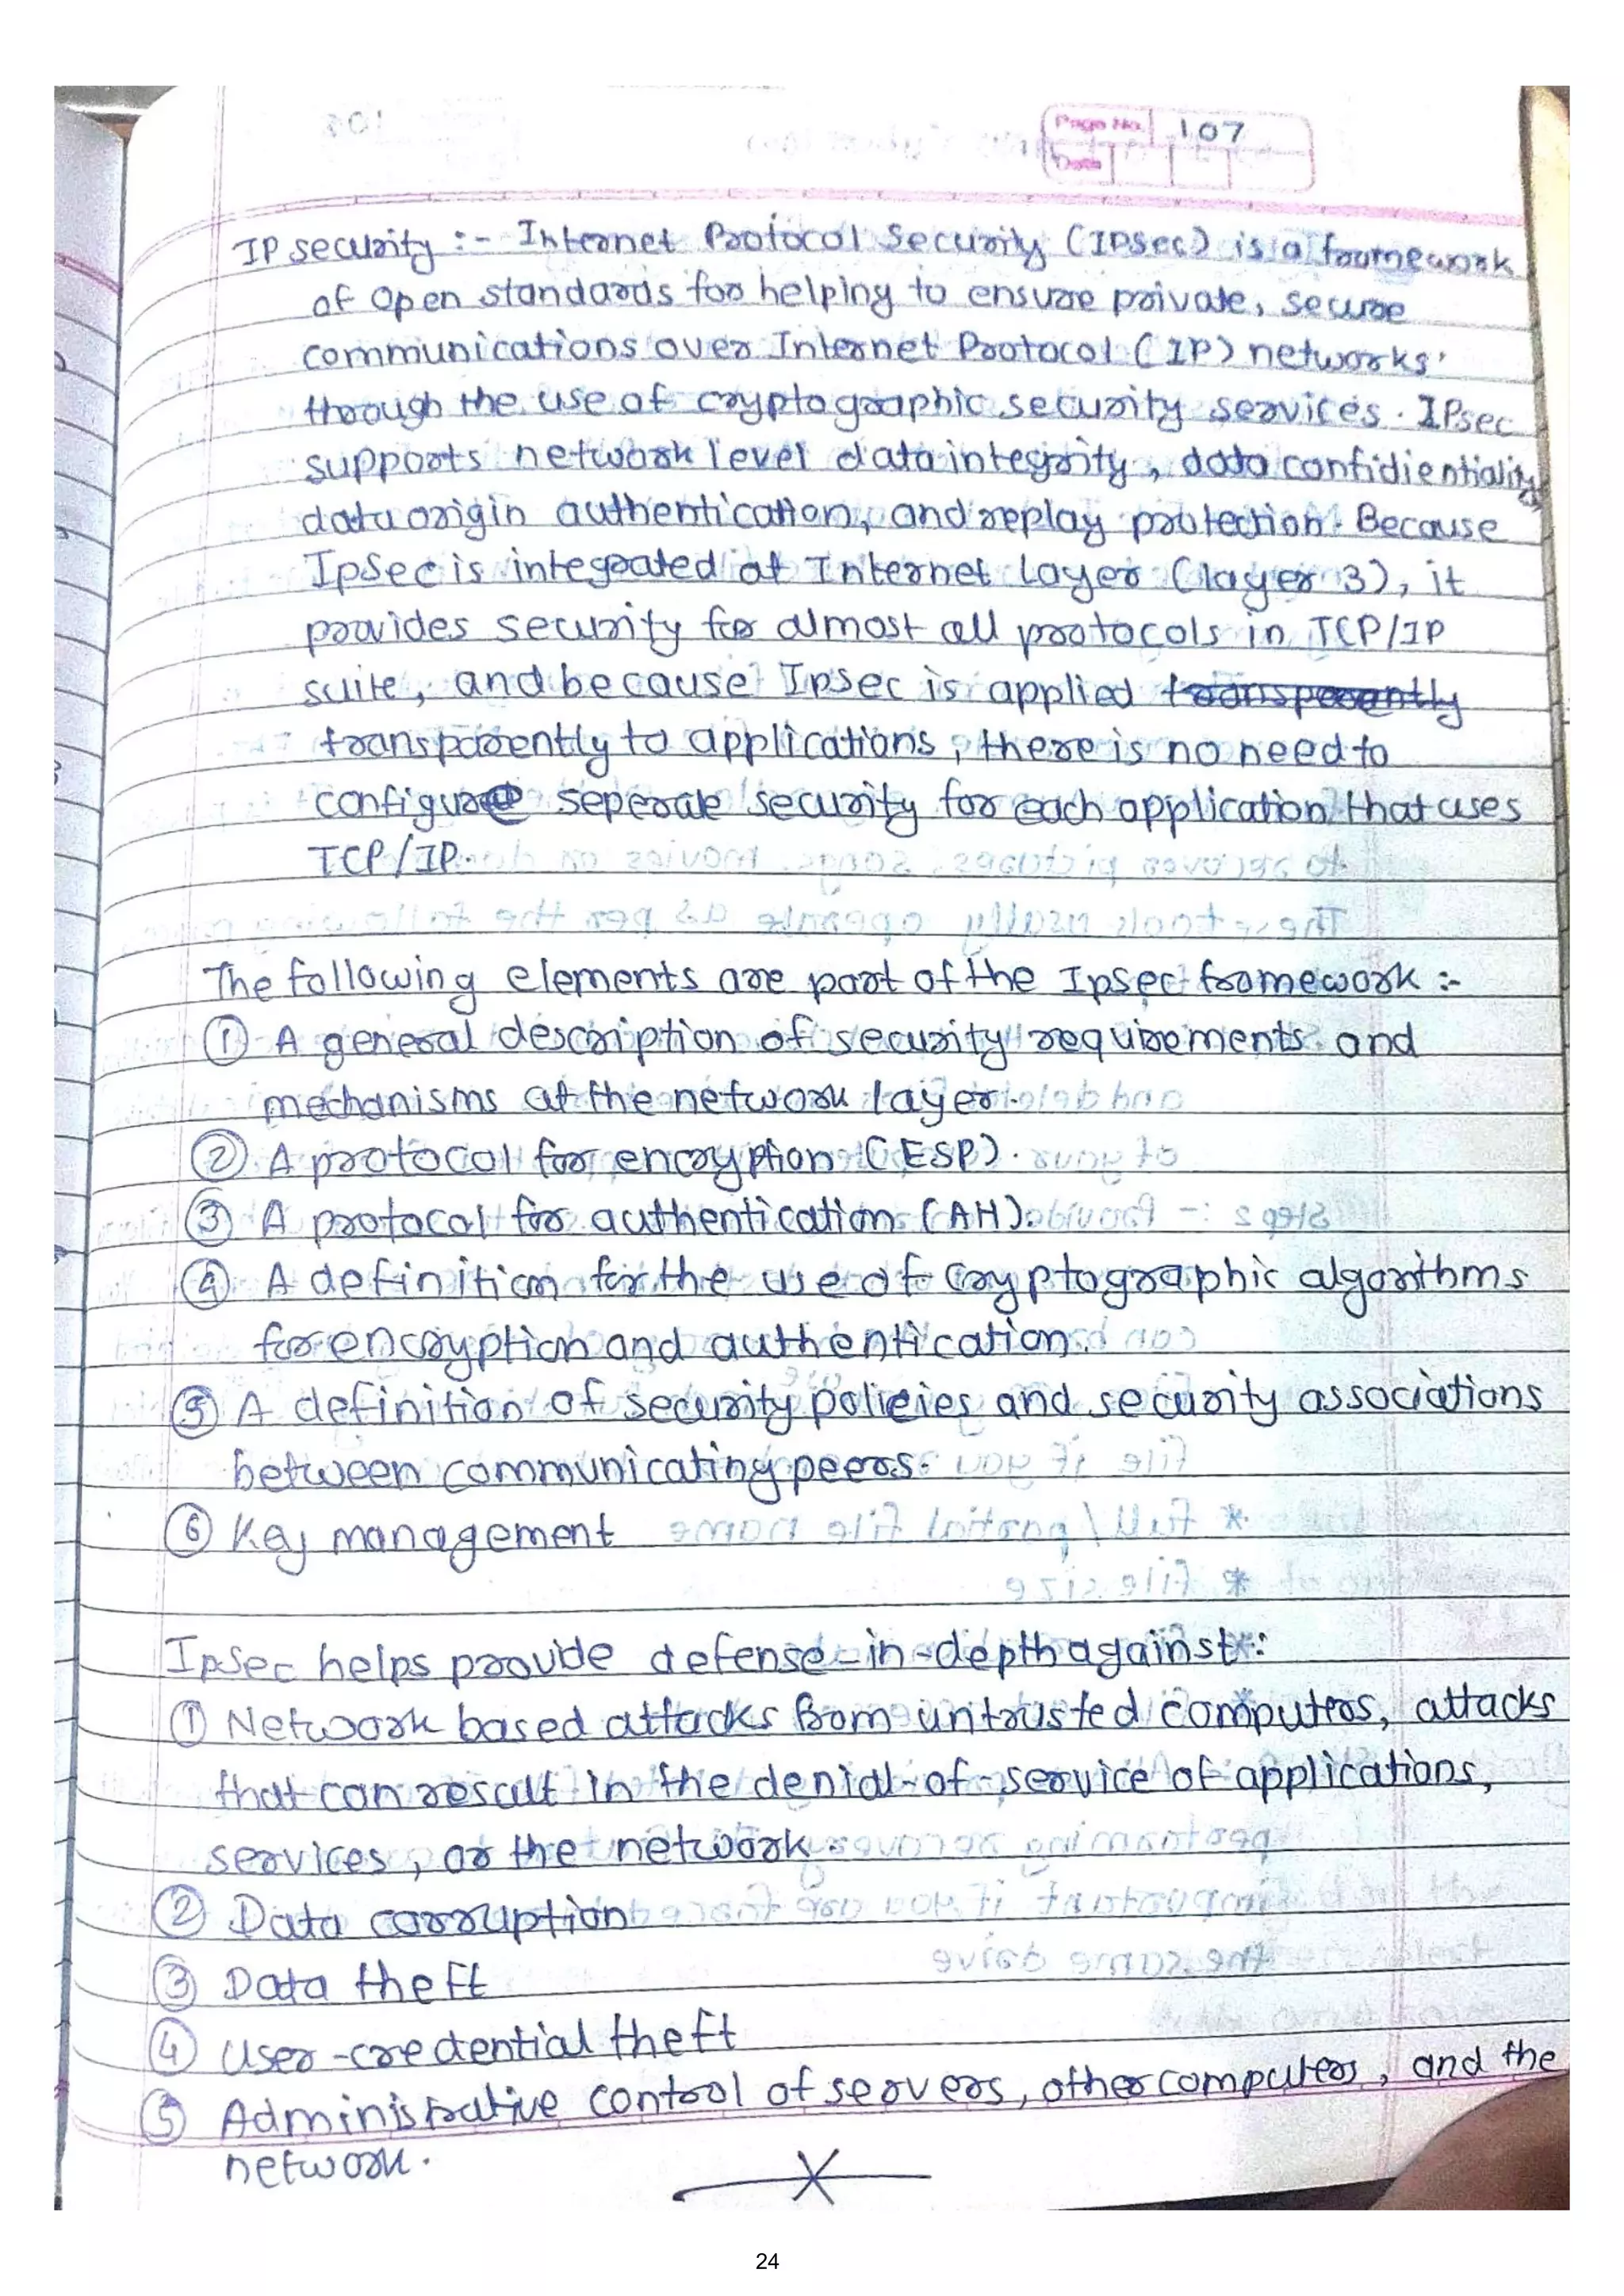 Page No. 107
Date
IP security :- Internet Protocol Security (IPSec) is a framework
of open standards for helping to ensure private, secure
communications over Internet Protocol (IP) networks
through the use of cryptographic security services. IPsec
supports network level data integrity, data confidientiality
data origin authentication, and replay protection. Because
IpSec is integrated at Internet layer (layer 3), it
provides security for almost all protocols in TCP/IP
suite, and because IpSec is applied transparently
transparently to applications, there is no need to
configure seperate security for each application that uses
TCP/IP.
The following elements are part of the Ipsec framework :-
① A general description of security requirements and
mechanisms at the network layer.
② A protocol for encryption (ESP).
③ A protocol for authentication (AH).
④ A definition for the use of cryptographic algorithms
for encryption and authentication.
⑤ A definition of security policies and security associations
between communicating peers.
⑥ Key management
IpSec helps provide defense-in-depth against:
① Network based attacks from untrusted computers, attacks
that can result in the denial-of-service of applications,
services, or the network.
② Data corruption
③ Data theft
④ User-credential theft
⑤ Administrative control of servers, other computers, and the
network.
24